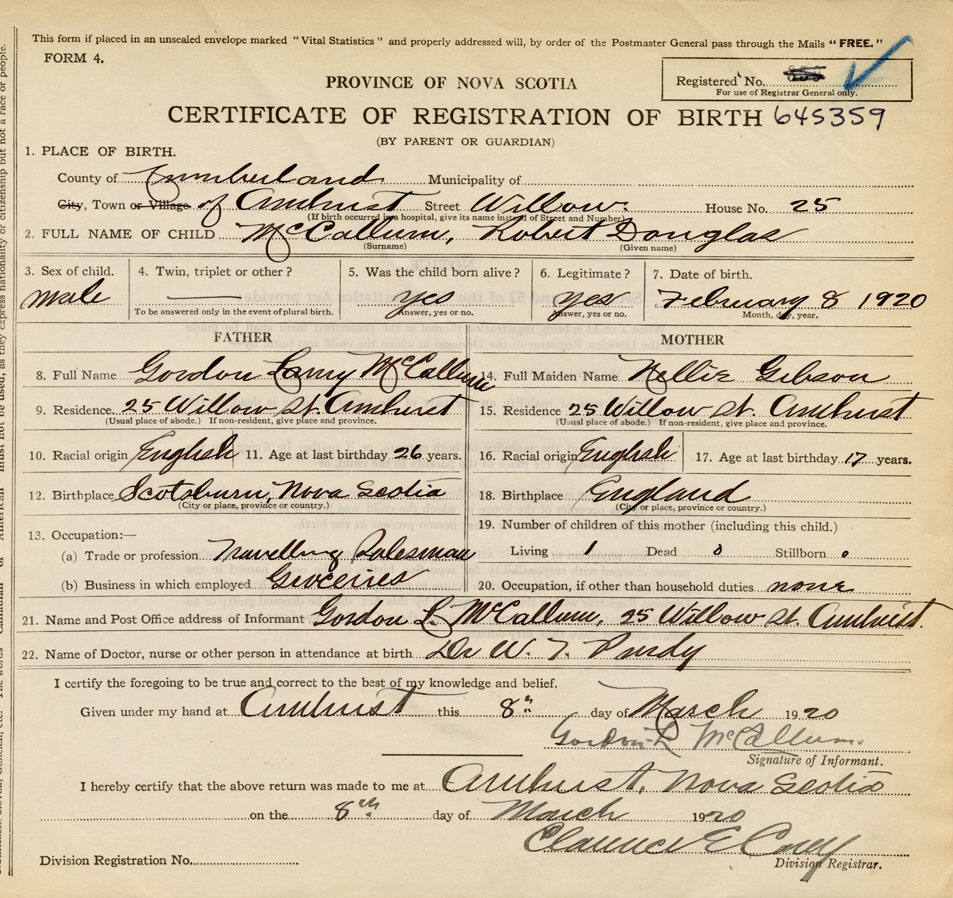 This form if placed in an unsealed envelope marked "Vital Statistics" and properly addressed will, by order of the Postmaster General pass through the Mails "FREE."
FORM 4.
Registered No.
For use of Registrar General only.
PROVINCE OF NOVA SCOTIA
CERTIFICATE OF REGISTRATION OF BIRTH 645359
(BY PARENT OR GUARDIAN)
1. PLACE OF BIRTH.
County of Cumberland Municipality of
City, Town or Village of Amherst Street Willow House No. 25
(If birth occurred in a hospital, give its name instead of Street and Number)
2. FULL NAME OF CHILD McCallum, Robert Douglas
(Surname) (Given name)
3. Sex of child. 4. Twin, triplet or other? 5. Was the child born alive? 6. Legitimate? 7. Date of birth.
male —— yes yes February 8 1920
To be answered only in the event of plural birth. Answer, yes or no. Answer, yes or no. Month, day, year.
FATHER MOTHER
8. Full Name Gordon McCallum 14. Full Maiden Name Nellie Gibson
9. Residence 25 Willow St. Amherst 15. Residence 25 Willow St. Amherst
(Usual place of abode.) If non-resident, give place and province. (Usual place of abode.) If non-resident, give place and province.
10. Racial origin English 11. Age at last birthday 26 years. 16. Racial origin English 17. Age at last birthday 17 years.
12. Birthplace Scotsburn, Nova Scotia 18. Birthplace England
(City or place, province or country.) (City or place, province or country.)
13. Occupation:— 19. Number of children of this mother (including this child.)
(a) Trade or profession Travelling Salesman Living 1 Dead 0 Stillborn 0
(b) Business in which employed Groceries 20. Occupation, if other than household duties none
21. Name and Post Office address of Informant Gordon L. McCallum, 25 Willow St. Amherst.
22. Name of Doctor, nurse or other person in attendance at birth Dr W. T. Purdy
I certify the foregoing to be true and correct to the best of my knowledge and belief.
Given under my hand at Amherst this 8th day of March 1920
Gordon L McCallum
Signature of Informant.
I hereby certify that the above return was made to me at Amherst, Nova Scotia
on the 8th day of March 1920
Clarence E
Division Registration No. Division Registrar.